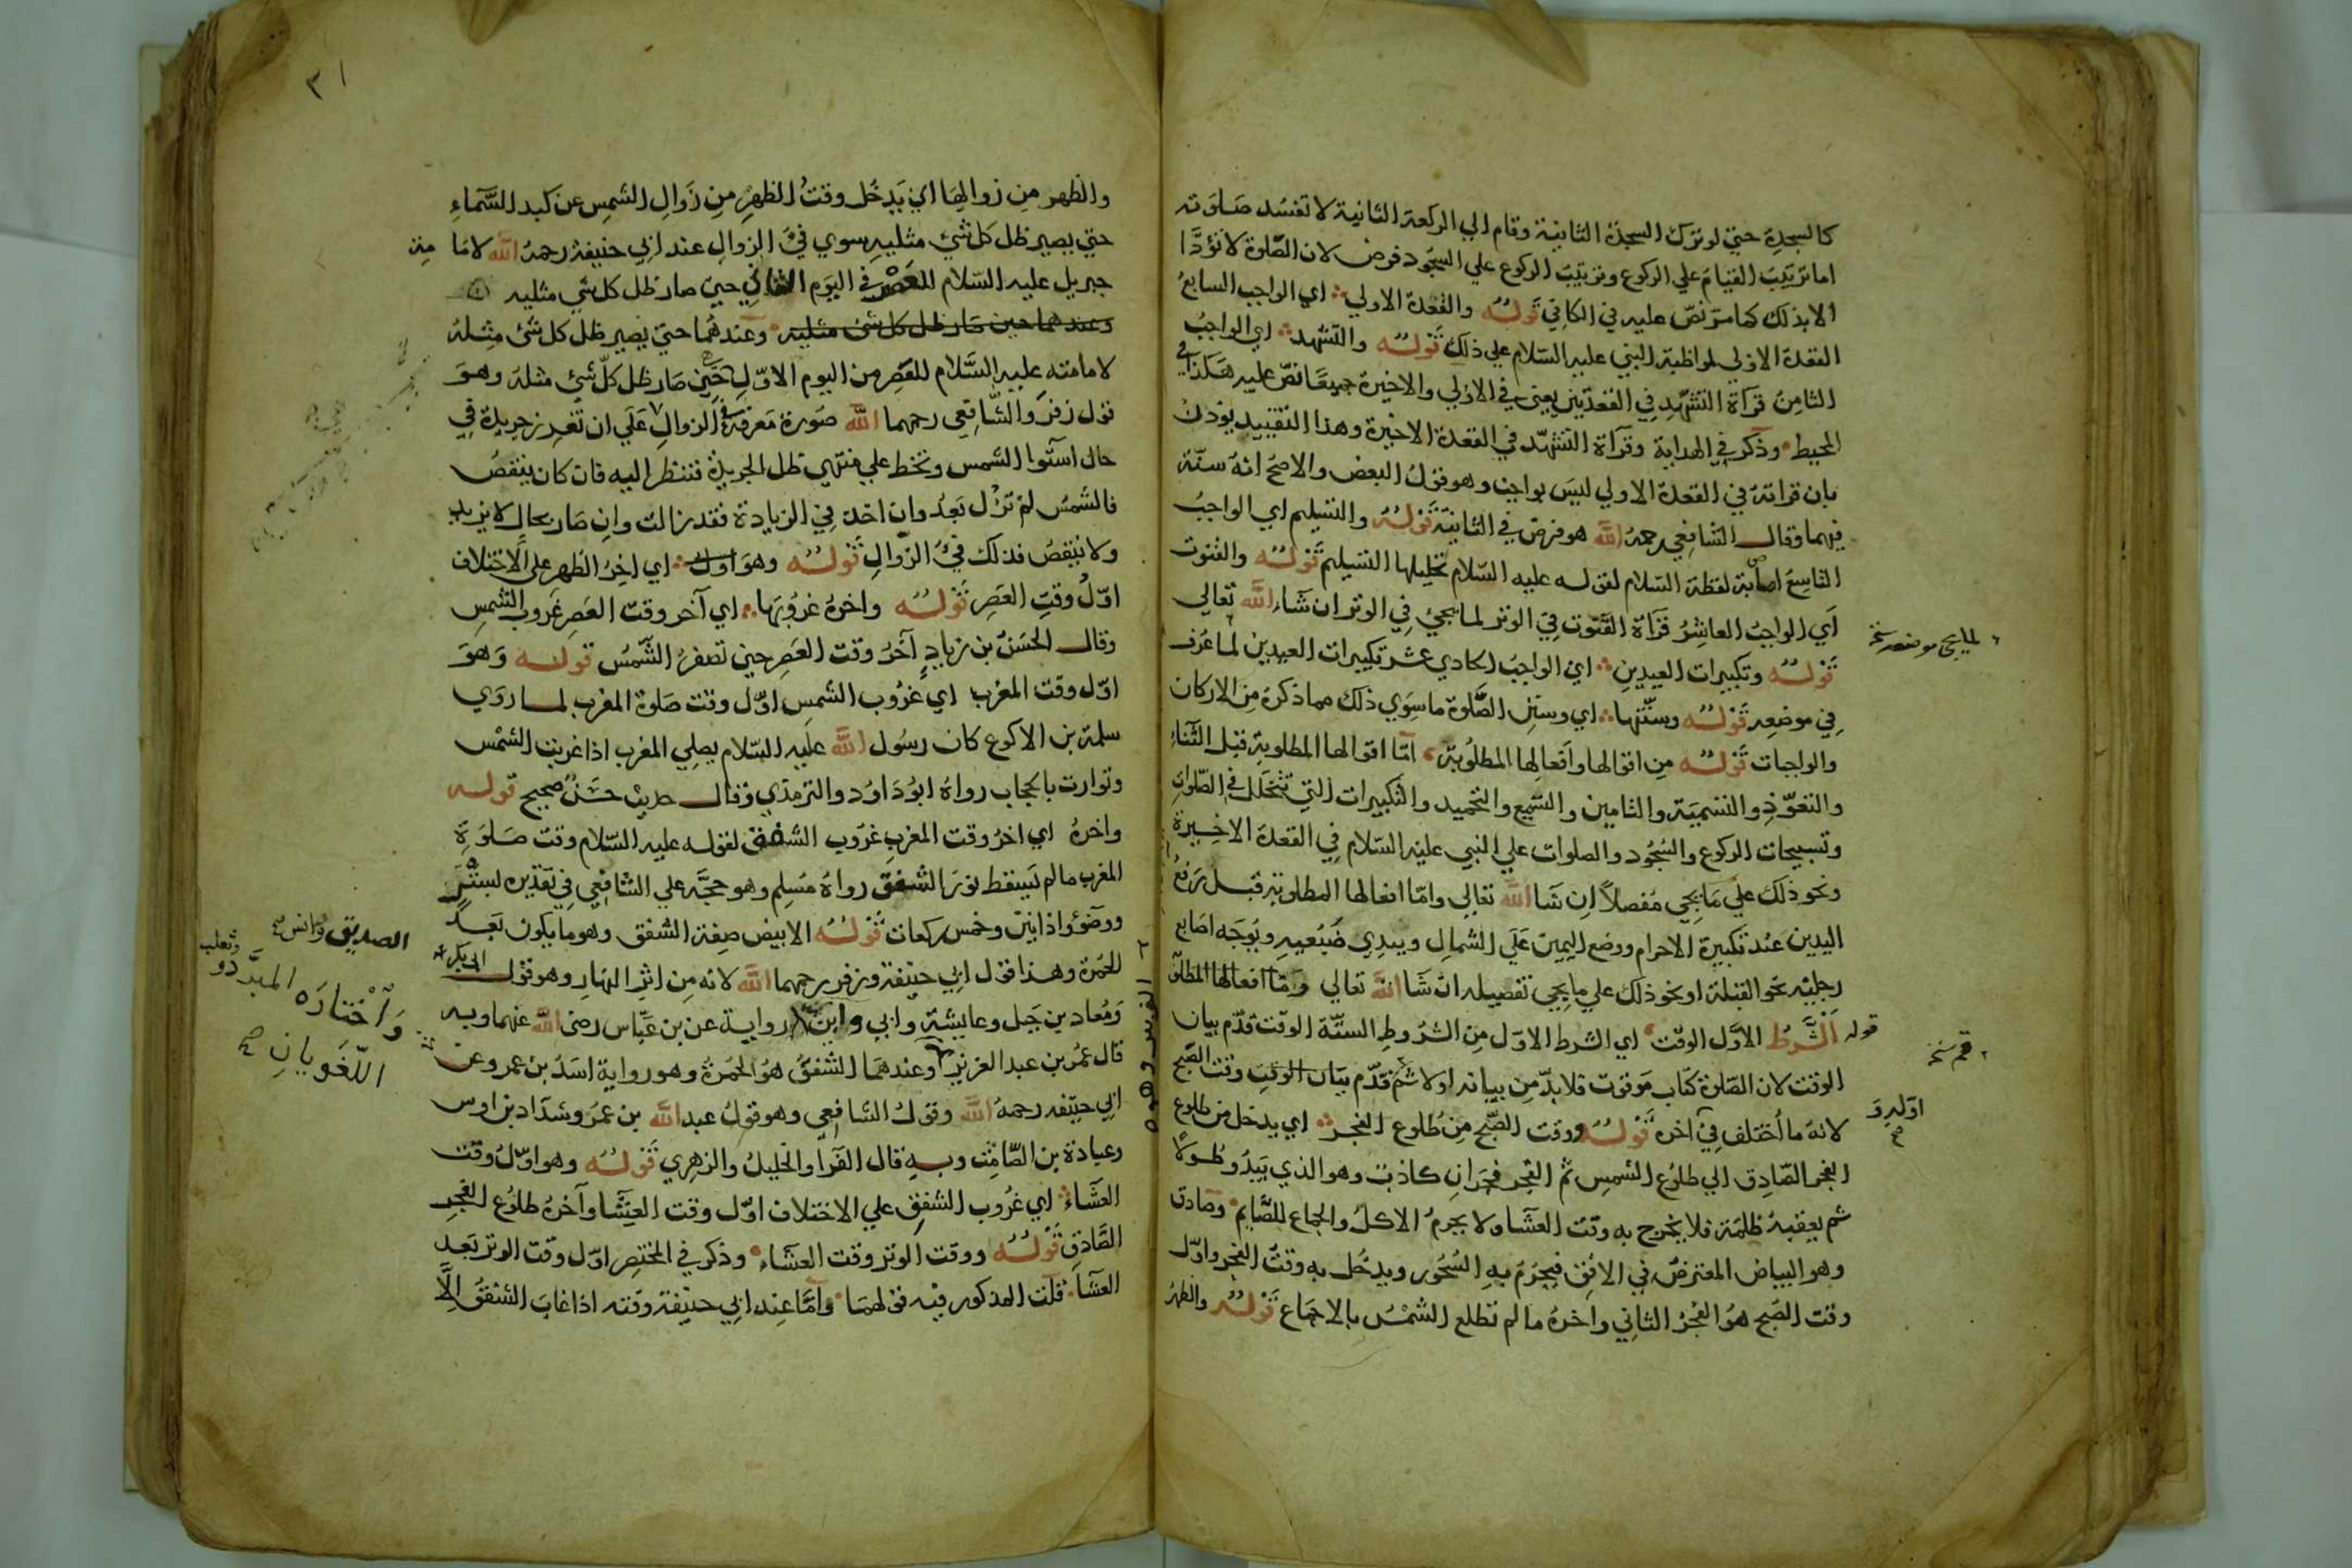 كالسجدة حتي لو ترك السجدة الثانية وقام الي الركعة الثانية لا تفسد صلوته
اما ترتيب القيام علي الركوع وترتيب الركوع علي السجود فرض لان الصلوة لا تؤدا
الا بذلك كما مر نص عليه في الكافي قوله والقعدة الاولي اي الواجب السابع
القعدة الاولي لمواظبة النبي عليه السلام علي ذلك قوله والتشهد اي الواجب
الثامن قرآة التشهد في القعدتين يعني في الاولي والاخيرة جميعا نص عليه هكذا في
المحيط وذكر في الهداية وقرآة التشهد في القعدة الاخيرة وهذا التقييد يؤذن
بان قرائته في القعدة الاولي ليس بواجب وهو قول البعض والاصح انه سنة
فيهما وقال الشافعي رحمه الله هو فرض في الثانية قوله والتسليم اي الواجب
التاسع اصابة لفظة السلام لقوله عليه السلام تحليلها التسليم قوله والقنوت
اي الواجب العاشر قرآة القنوت في الوتر لما يجئ في الوتر ان شاء الله تعالي
قوله وتكبيرات العيدين اي الواجب الحادي عشر تكبيرات العيدين لما عرف
في موضعه قوله وسننها اي وسنن الصلوة ما سوي ذلك مما ذكره من الاركان
والواجبات قوله من اقوالها وافعالها المطلوبة اما اقوالها المطلوبة قبل الثناء
والتعوذ والتسمية والتامين والتسميع والتحميد والتكبيرات التي تتخلل في الصلوات
وتسبيحات الركوع والسجود والصلوات علي النبي عليه السلام في القعدة الاخيرة
ونحو ذلك علي ما يجي مفصلا ان شا الله تعالي واما افعالها المطلوبة قبل رفع
اليدين عند تكبيرة الاحرام ووضع اليمين علي الشمال ويبدي ضبعيه ويوجه اصابع
رجليه نحو القبلة ونحو ذلك علي ما يجي تفصيله ان شا الله تعالي وما افعالها المطلو
قوله الشرط الاول الوقت اي الشرط الاول من الشروط الستة الوقت قدم بيان
الوقت لان الصلوة كتاب موقوت فلا بد من بيانه اولا ثم قدم بيان الوقت وقت الصبح
لانه ما اختلف في آخره قوله ووقت الصبح من طلوع الفجر اي يدخل من طلوع
الفجر الصادق الي طلوع الشمس ثم الفجر فجران كاذب وهو الذي يبدو طولا
ثم يعقبه ظلمة فلا يخرج به وقت العشا ولا يحرم الاكل والجماع للصايم وصادق
وهو البياض المعترض في الافق فيحرم به السحور ويدخل به وقت الفجر واول
وقت الصبح هو الفجر الثاني واخره ما لم تطلع الشمس بالاجماع قوله والظهر
لما يجئ موضعه نسخ
اوله و
صح
٣١
والظهر من زوالها اي يدخل وقت الظهر من زوال الشمس عن كبد السماء
حتي يصير ظل كل شئ مثليه سوي فئ الزوال عند ابي حنيفة رحمه الله لاما مة
جبريل عليه السلام للعصر في اليوم الثاني حين صار ظل كل شئ مثليه
وعندهما حين صار ظل كل شئ مثليه وعندهما حتي يصير ظل كل شئ مثله
لامامته عليه السلام للعصر من اليوم الاول حين صار ظل كل شئ مثله وهو
قول زفر والشافعي رحمهما الله صورة معرفة فئ الزوال علي ان تغرز جريدة في
حال استوا الشمس وتخط علي منتهي ظل الجريدة فتنظر اليه فان كان ينقص
فالشمس لم تزل بعد وان اخذ في الزيادة فقد زالت وان صار بحال لا يزيد
ولا ينقص فذلك فئ الزوال قوله وهو اول اي اخر الظهر علي الاختلاف
اول وقت العصر قوله واخره غروبها اي آخر وقت العصر غروب الشمس
وقال الحسن بن زياد آخر وقت العصر حين تصفر الشمس قوله وهو
اول وقت المغرب اي غروب الشمس اول وقت صلوة المغرب لما روي
سلمة بن الاكوع كان رسول الله عليه السلام يصلي المغرب اذا غربت الشمس
وتوارت بالحجاب رواه ابو داود والترمذي وقال حديث حسن صحيح قوله
واخره اي اخر وقت المغرب غروب الشفق لقوله عليه السلام وقت صلوة
المغرب ما لم يسقط نور الشفق رواه مسلم وهو حجة علي الشافعي في تقديره لستر
ووضوء واذانين وخمس ركعات قوله الابيض صفة الشفق وهو ما يكون بعد
الحمرة وهذا قول ابي حنيفة وزفر رحمهما الله لانه من اثر النهار وهو قول ابي بكر
ومعاذ بن جبل وعايشة وابي رواية عن بن عباس رضي الله عنهما وبه
قال عمر بن عبد العزيز وعندهما الشفق هو الحمرة وهو رواية اسد بن عمرو عن
ابي حنيفه رحمه الله وقول الشافعي وهو قول عبد الله بن عمر وشداد بن اوس
وعبادة بن الصامت وبه قال الفرا والخليل والزهري قوله وهو اول وقت
العشاء اي غروب الشفق علي الاختلاف اول وقت العشا وآخره طلوع الفجر
الصادق قوله ووقت الوتر وقت العشاء وذكر في المختصر اول وقت الوتر بعد
العشا قلت المذكور فيه قولهما واما عند ابي حنيفة وقته اذا غاب الشفق الا
الصديق وانس صح
واختاره المبرد وثعلب
اللغويان صح